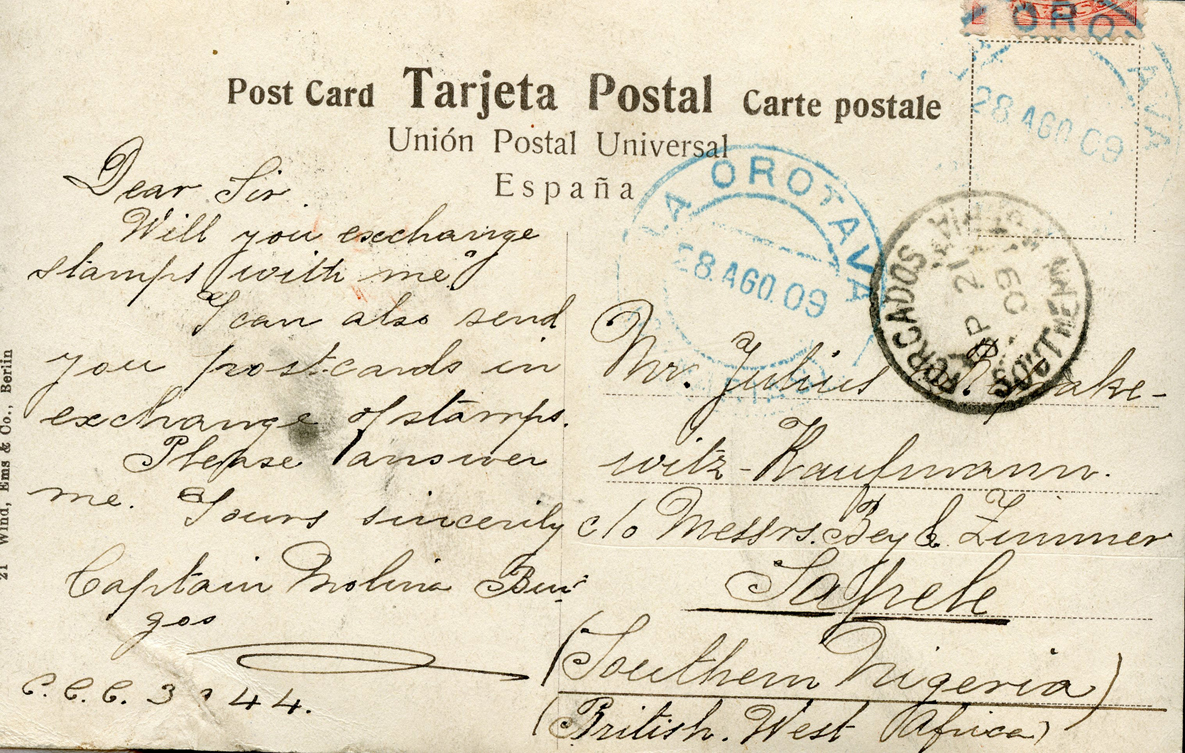 Post Card Tarjeta Postal Carte postale
Unión Postal Universal
España
OROTAVA
28.AGO.09
LA OROTAVA
28.AGO.09
FORCADOS
SOUTHERN
SP 21
09
Dear Sir
Will you exchange
stamps with me?
I can also send
you postcards in
exchange of stamps.
Please answer
me. Yours sincerily
Captain Molina Bur-
gos
C.C.C. 3 44.
21 Wind, Ems & Co., Berlin
Mr. Julius ake-
witz-Kaufmann.
c/o Messrs. Bey & Zimmer
Sapele
(Southern Nigeria)
(British. West Africa)